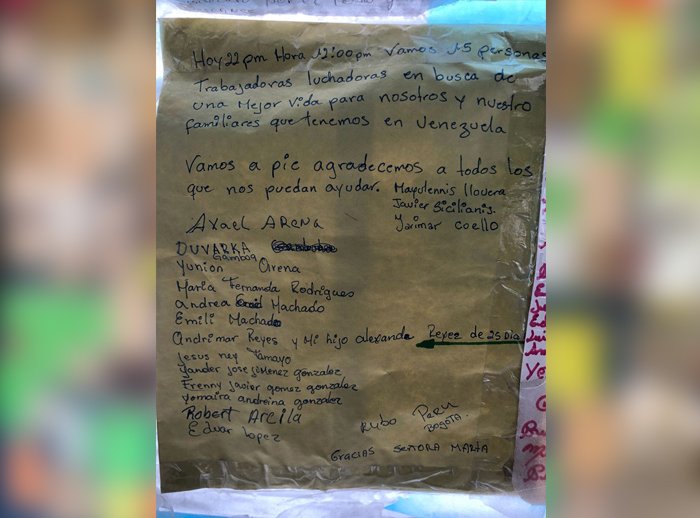 Hoy 22 pm Hora 12:00 pm Vamos 15 personas
Trabajadoras luchadoras en busca de
una Mejor Vida para nosotros y nuestro
familiares que tenemos en Venezuela
Vamos a pie agradecemos a todos los
que nos puedan ayudar.
Mayulennis llovera
Javier Sicilianis.
Yarimar Coello
Axael ARENA
DUVARKA
Gamboa
Yunion Arena
Maria Fernanda Rodrigues
Andrea Machado
Emili Machado
Andrimar Reyes y Mi hijo alexande Reyez de 25 Dia
Jesus ney Tamayo
Yander jose jimenez gonzalez
Frenny javier gomez gonzalez
Yomaira andreina gonzalez
Robert Arcila
Eduar lopez
Rubo Peru
Bogota.
Gracias SEÑORA MARTA